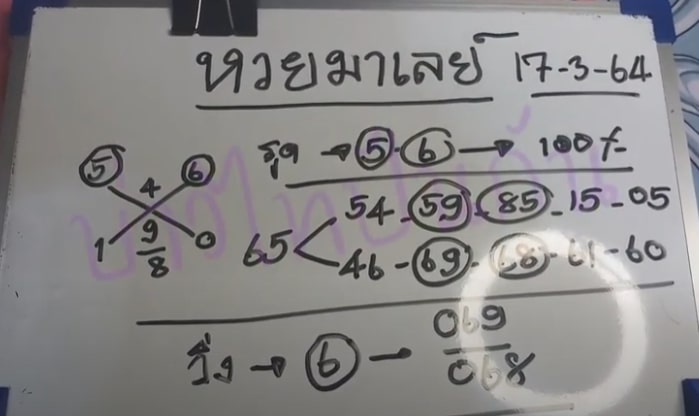 หวยมาเลย์ 17-3-64
5 6
4
1 9 0
8
รูด → 5 - 6 → 100%
65 < 54 - 59 - 85 - 15 - 05
46 - 69 - 68 - 61 - 60
วิ่ง → 6 - 069
068